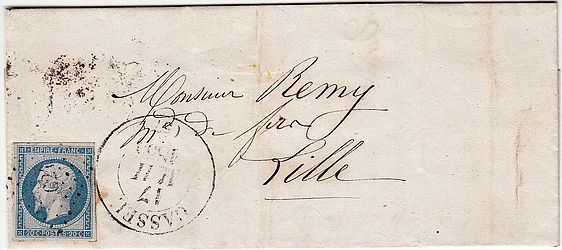 Monsieur Remy
Md de fer
Lille
CASSEL
17
EMPIRE FRANC
20 C POSTES 20 C